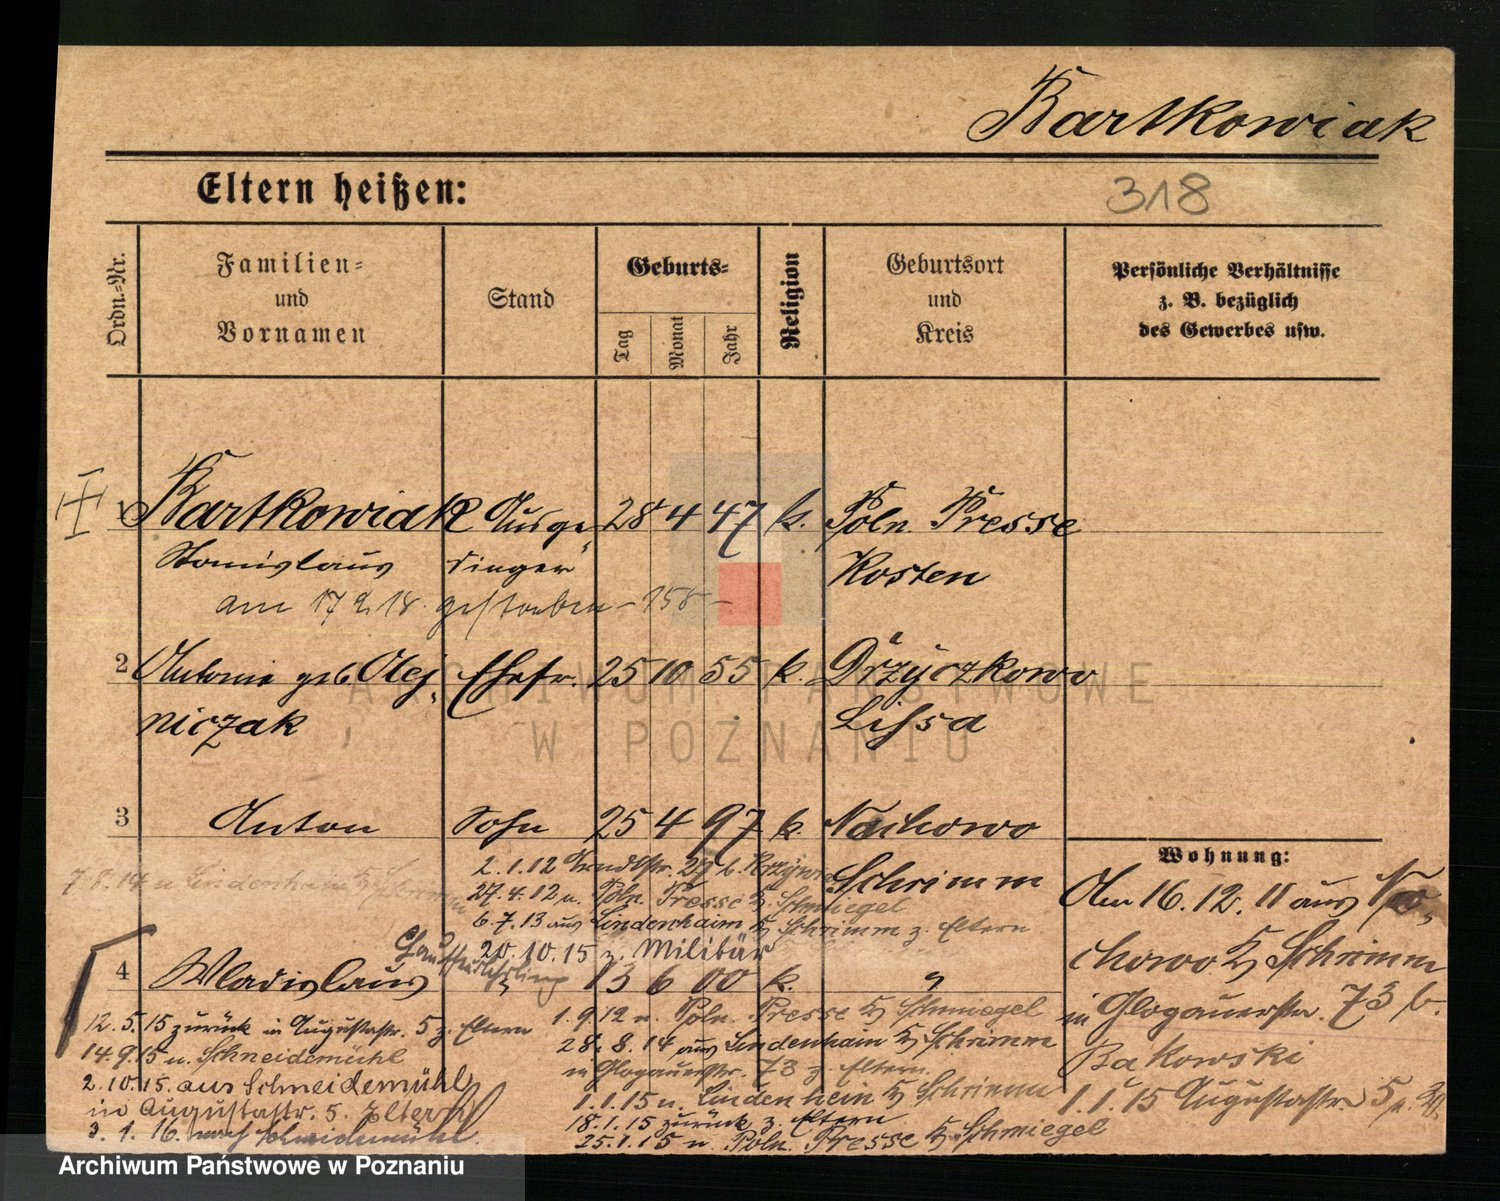 Bartkowiak
Eltern heißen:
318
Ordn.-Nr.
Familien-
und
Vornamen
Stand
Geburts-
Tag
Monat
Jahr
Religion
Geburtsort
und
Kreis
Persönliche Verhältnisse
z. B. bezüglich
des Gewerbes usw.
1 Bartkowiak Ausge- 28 4 47 k. Poln. Presse
Stanislaus dinger Kosten
am 17 2 18. gestorben - 158 -
2 Antonie geb. Olej- Ehefr. 25 10 55 k. Drzyczkowo
niczak Lissa
3 Anton Sohn 25 4 97 k. Nochowo
Schrimm
2.1.12 29
7.8.14 n Lindenhain Kr Schrimm
27.4.12 n. Poln. Presse Kr. Schmiegel
6.7.13 aus Lindenhain Kr Schrimm z. Eltern
20.10.15 z. Militär
4 Wladislaus " 13 6 00 k. "
12.5.15 zurück in Augustastr. 5 z. Eltern
14.9.15 n. Schneidemühl
2.10.15. aus Schneidemühl
in Augustastr. 5. Eltern
3.1.16. nach Schneidemühl.
1.9.12 n. Poln. Presse Kr Schmiegel
28.8.14 aus Lindenhain Kr Schrimm
in Glogauerstr. 73 z. Eltern.
1.1.15 n. Lindenhein Kr Schrimm
18.1.15 zurück z. Eltern
25.1.15 n. Poln. Presse Kr. Schmiegel
Wohnung:
Am 16.12.11 aus No-
chowo Kr Schrimm
in Glogauerstr. 73 b.
Bakowski
1.1.15 Augustastr. 5
ARCHIWUM PAŃSTWOWE
W POZNANIU
Archiwum Państwowe w Poznaniu